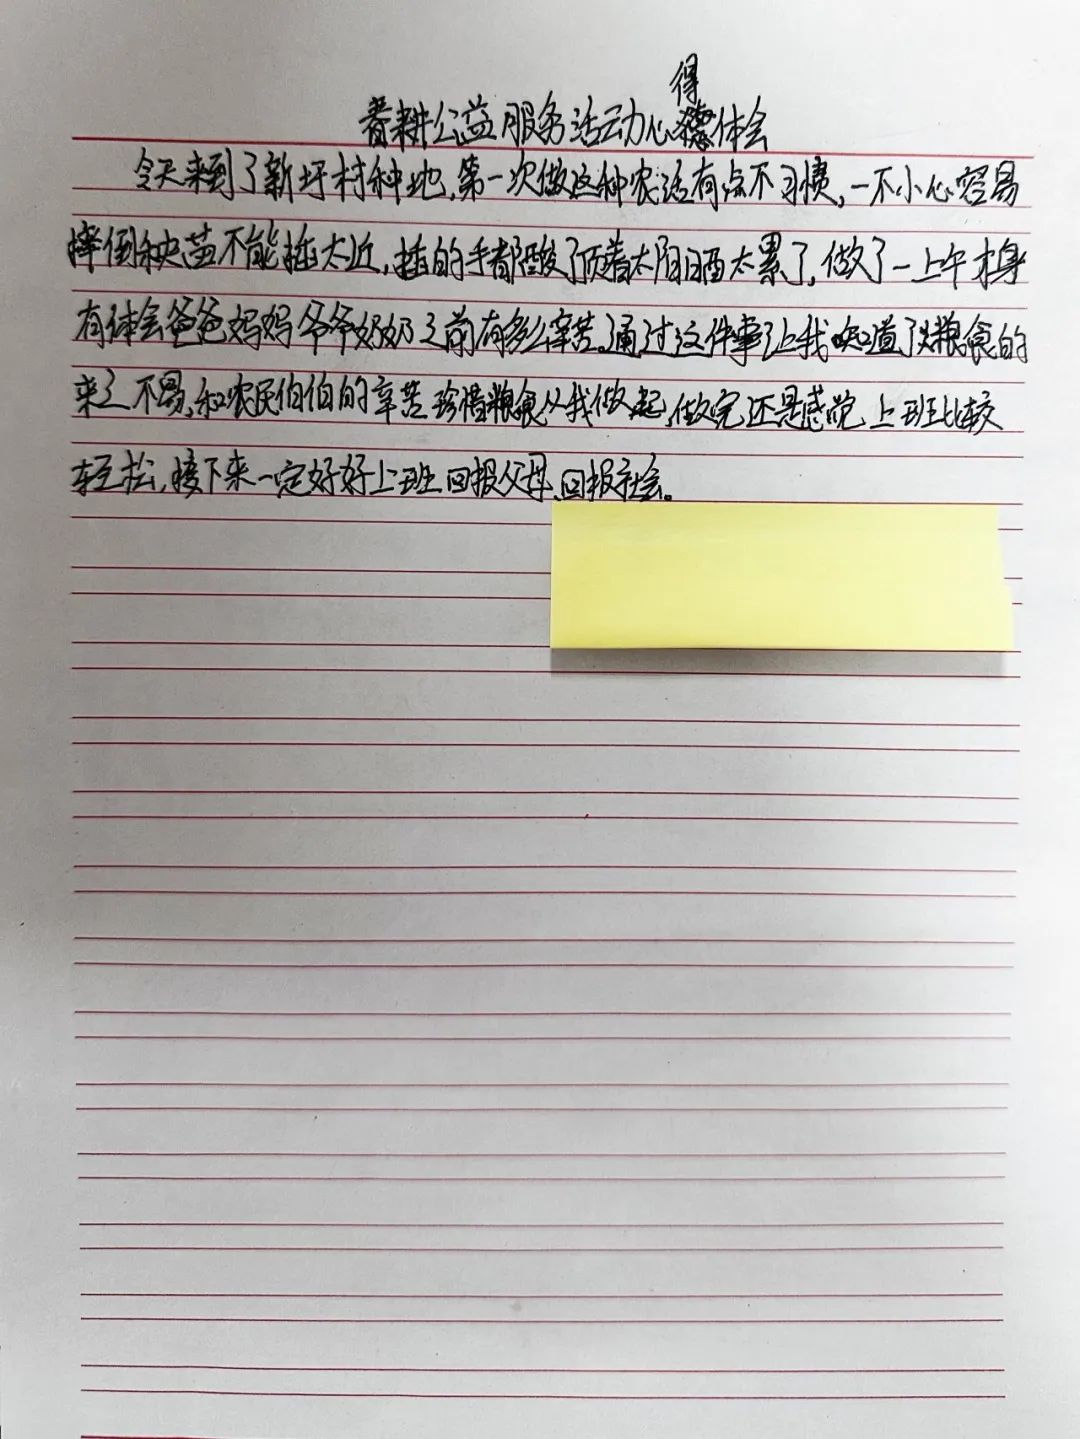 春耕公益服务活动心得体会
今天来到了新圩村种地,第一次做这种农活有点不习惯,一不小心容易
摔倒秧苗不能插太近,插的手都酸了顶着太阳晒太累了,做了一上午才
有体会爸爸妈妈爷爷奶奶之前有多么辛苦。通过这件事让我知道了粮食的
来之不易,和农民伯伯的辛苦珍惜粮食从我做起,做完还是感觉上班比较
轻松,接下来一定好好上班回报父母、回报社会。